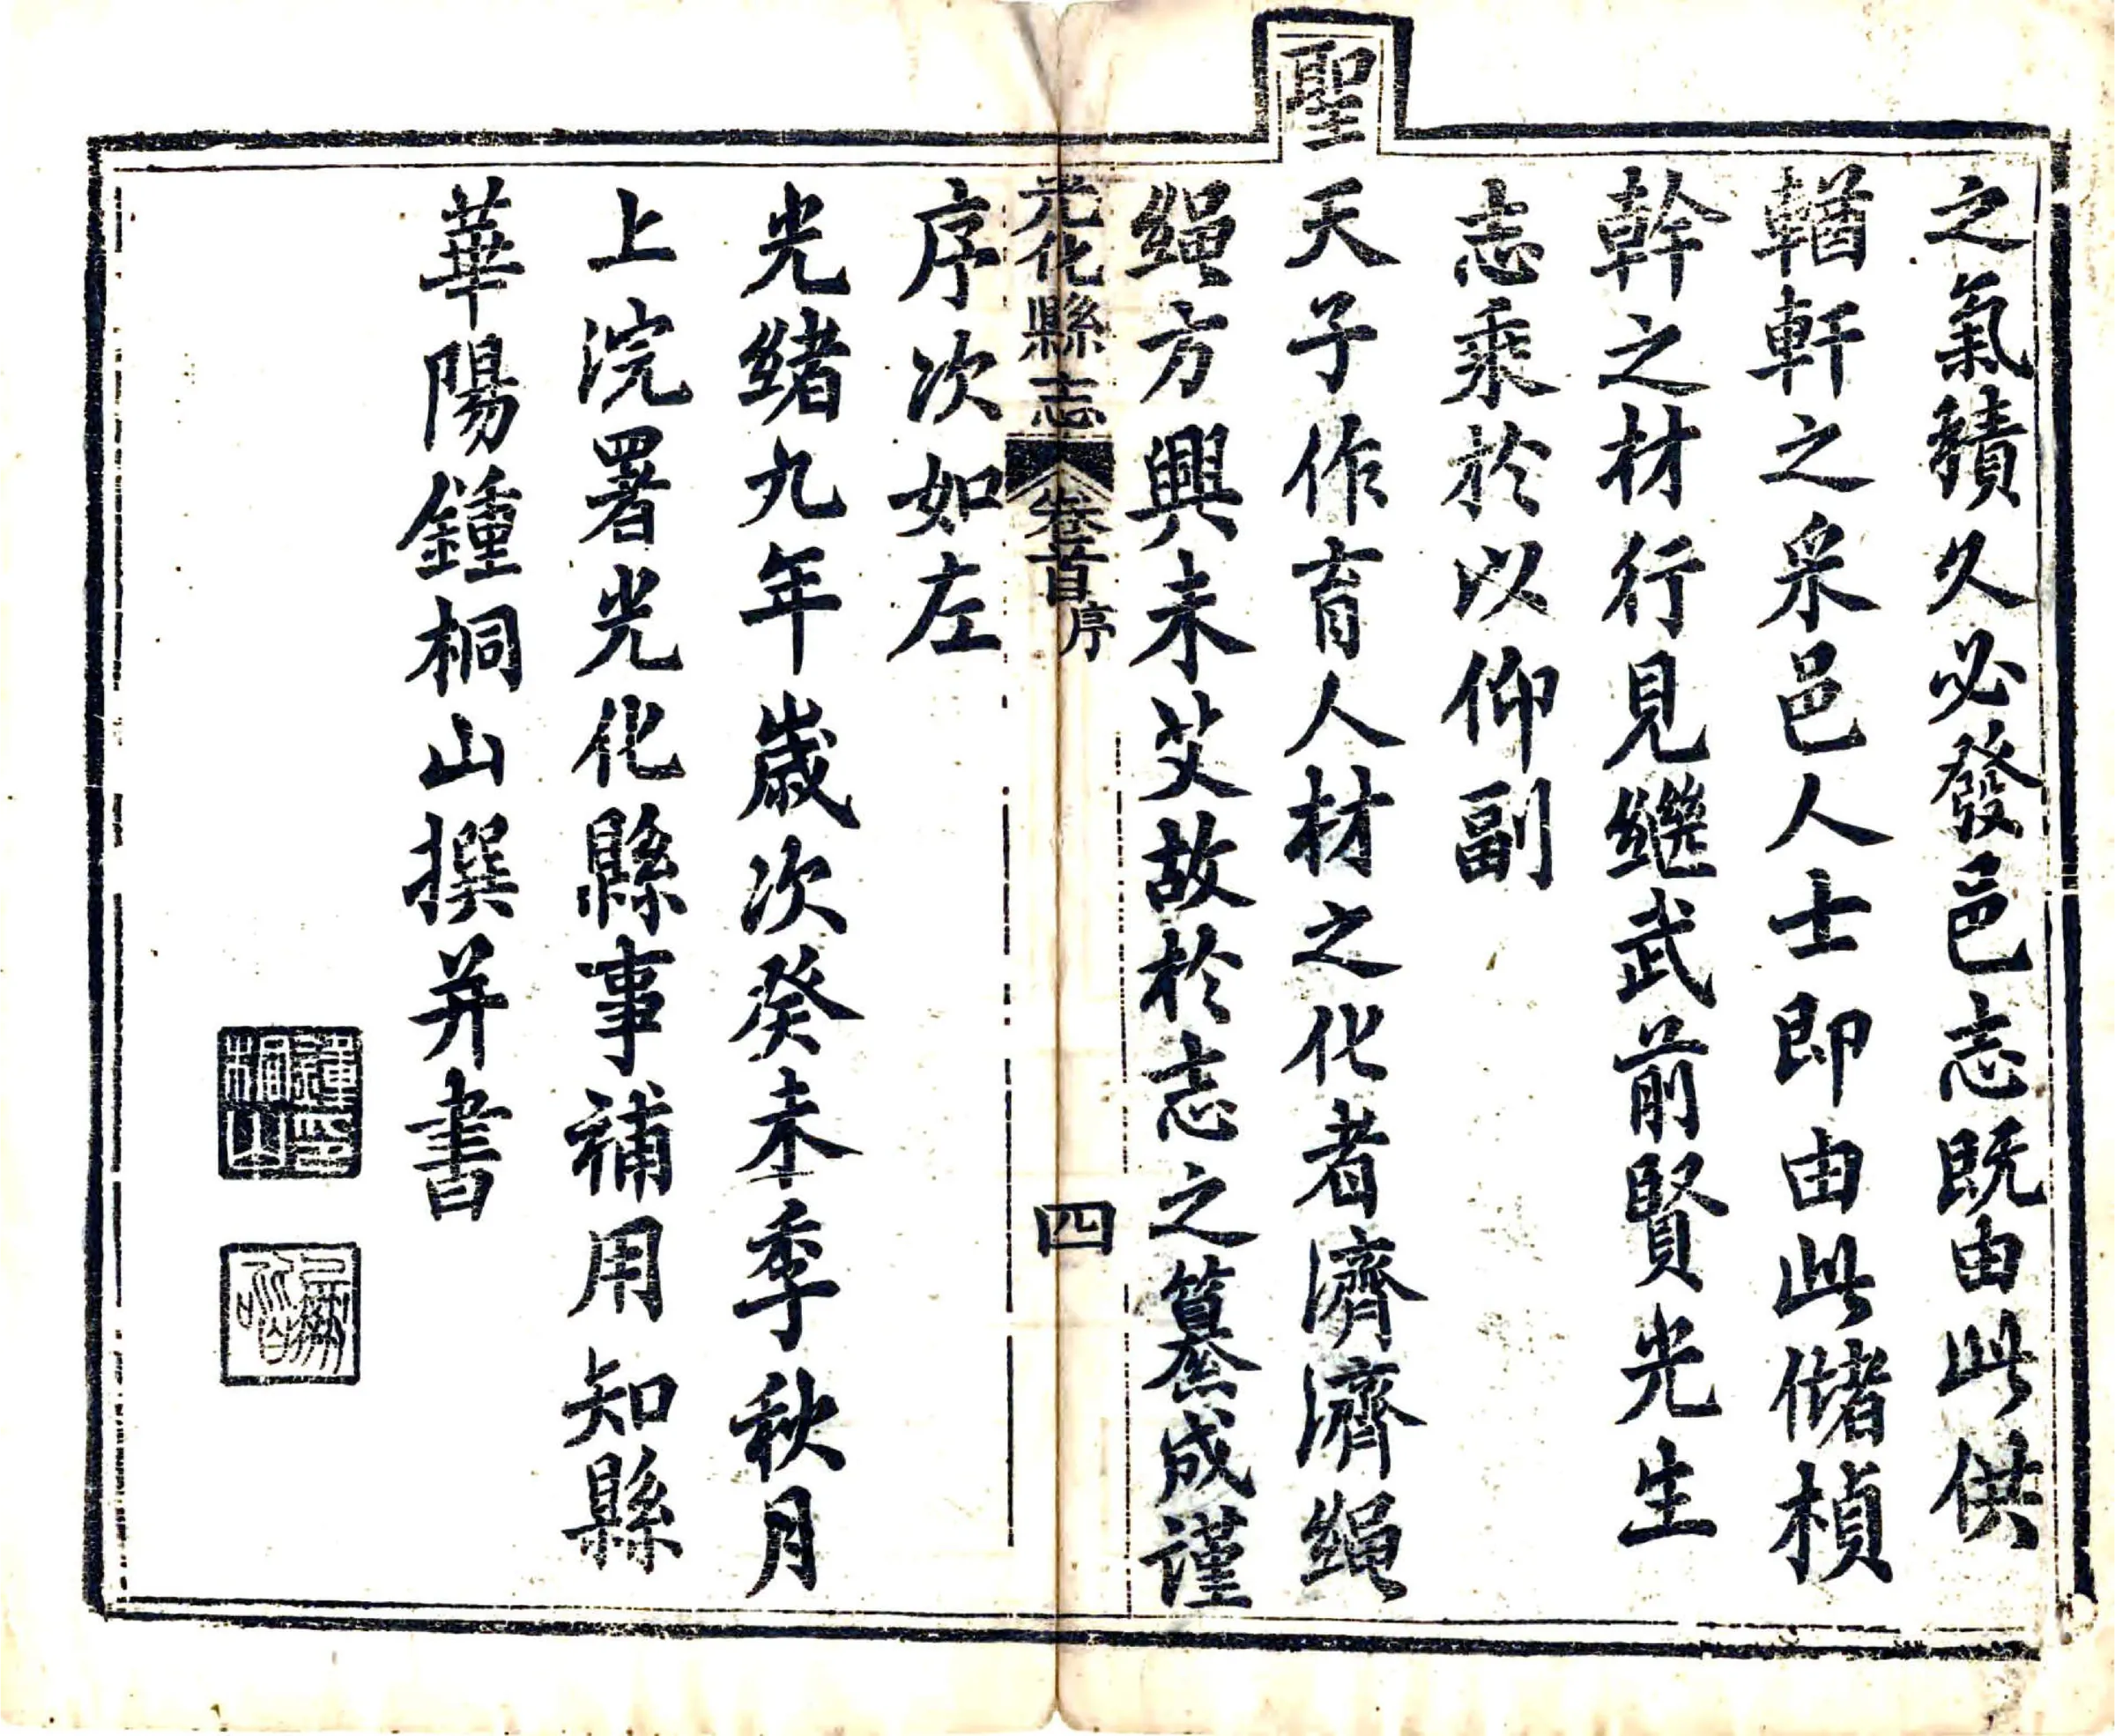 之氣積久必發邑志既由此供
輶軒之采邑人士即由此儲楨
幹之材行見繼武前賢光生
志乘於以仰副
聖天子作育人材之化者濟濟繩
繩方興未艾故於志之纂成謹
光化縣志 卷首 序 四
序次如左
光緒九年歲次癸未季秋月
上浣署光化縣事補用知縣
華陽鍾桐山撰并書
鍾桐山印